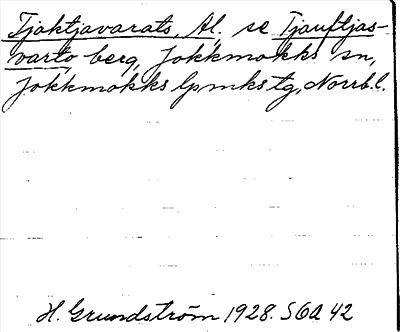 Tjaktjavarats, Al. se Tjauftjas-
varto, berg, Jokkmokks sn,
Jokkmokks lpmkstg, Norrb.l.
H. Grundström 1928. SGA 42